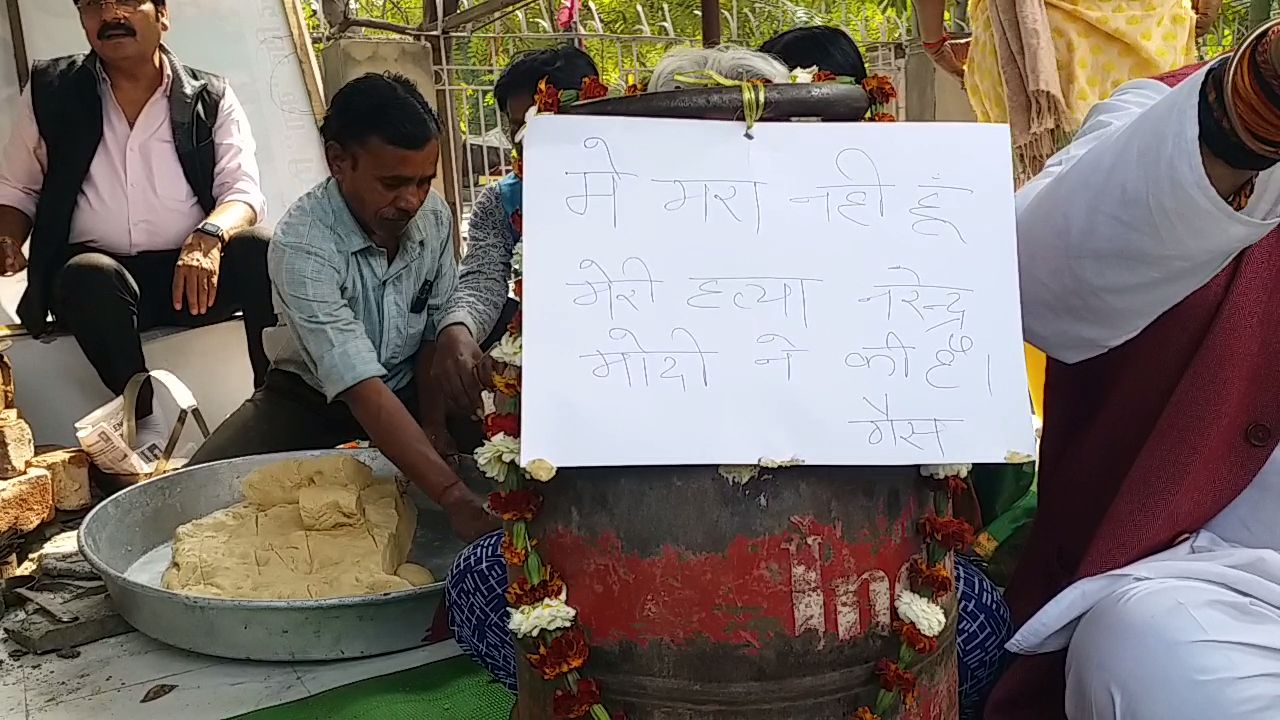 मे मरा नही हूं
मेरी हत्या नरेन्द्र
मोदी ने की हैं।
गैस
In